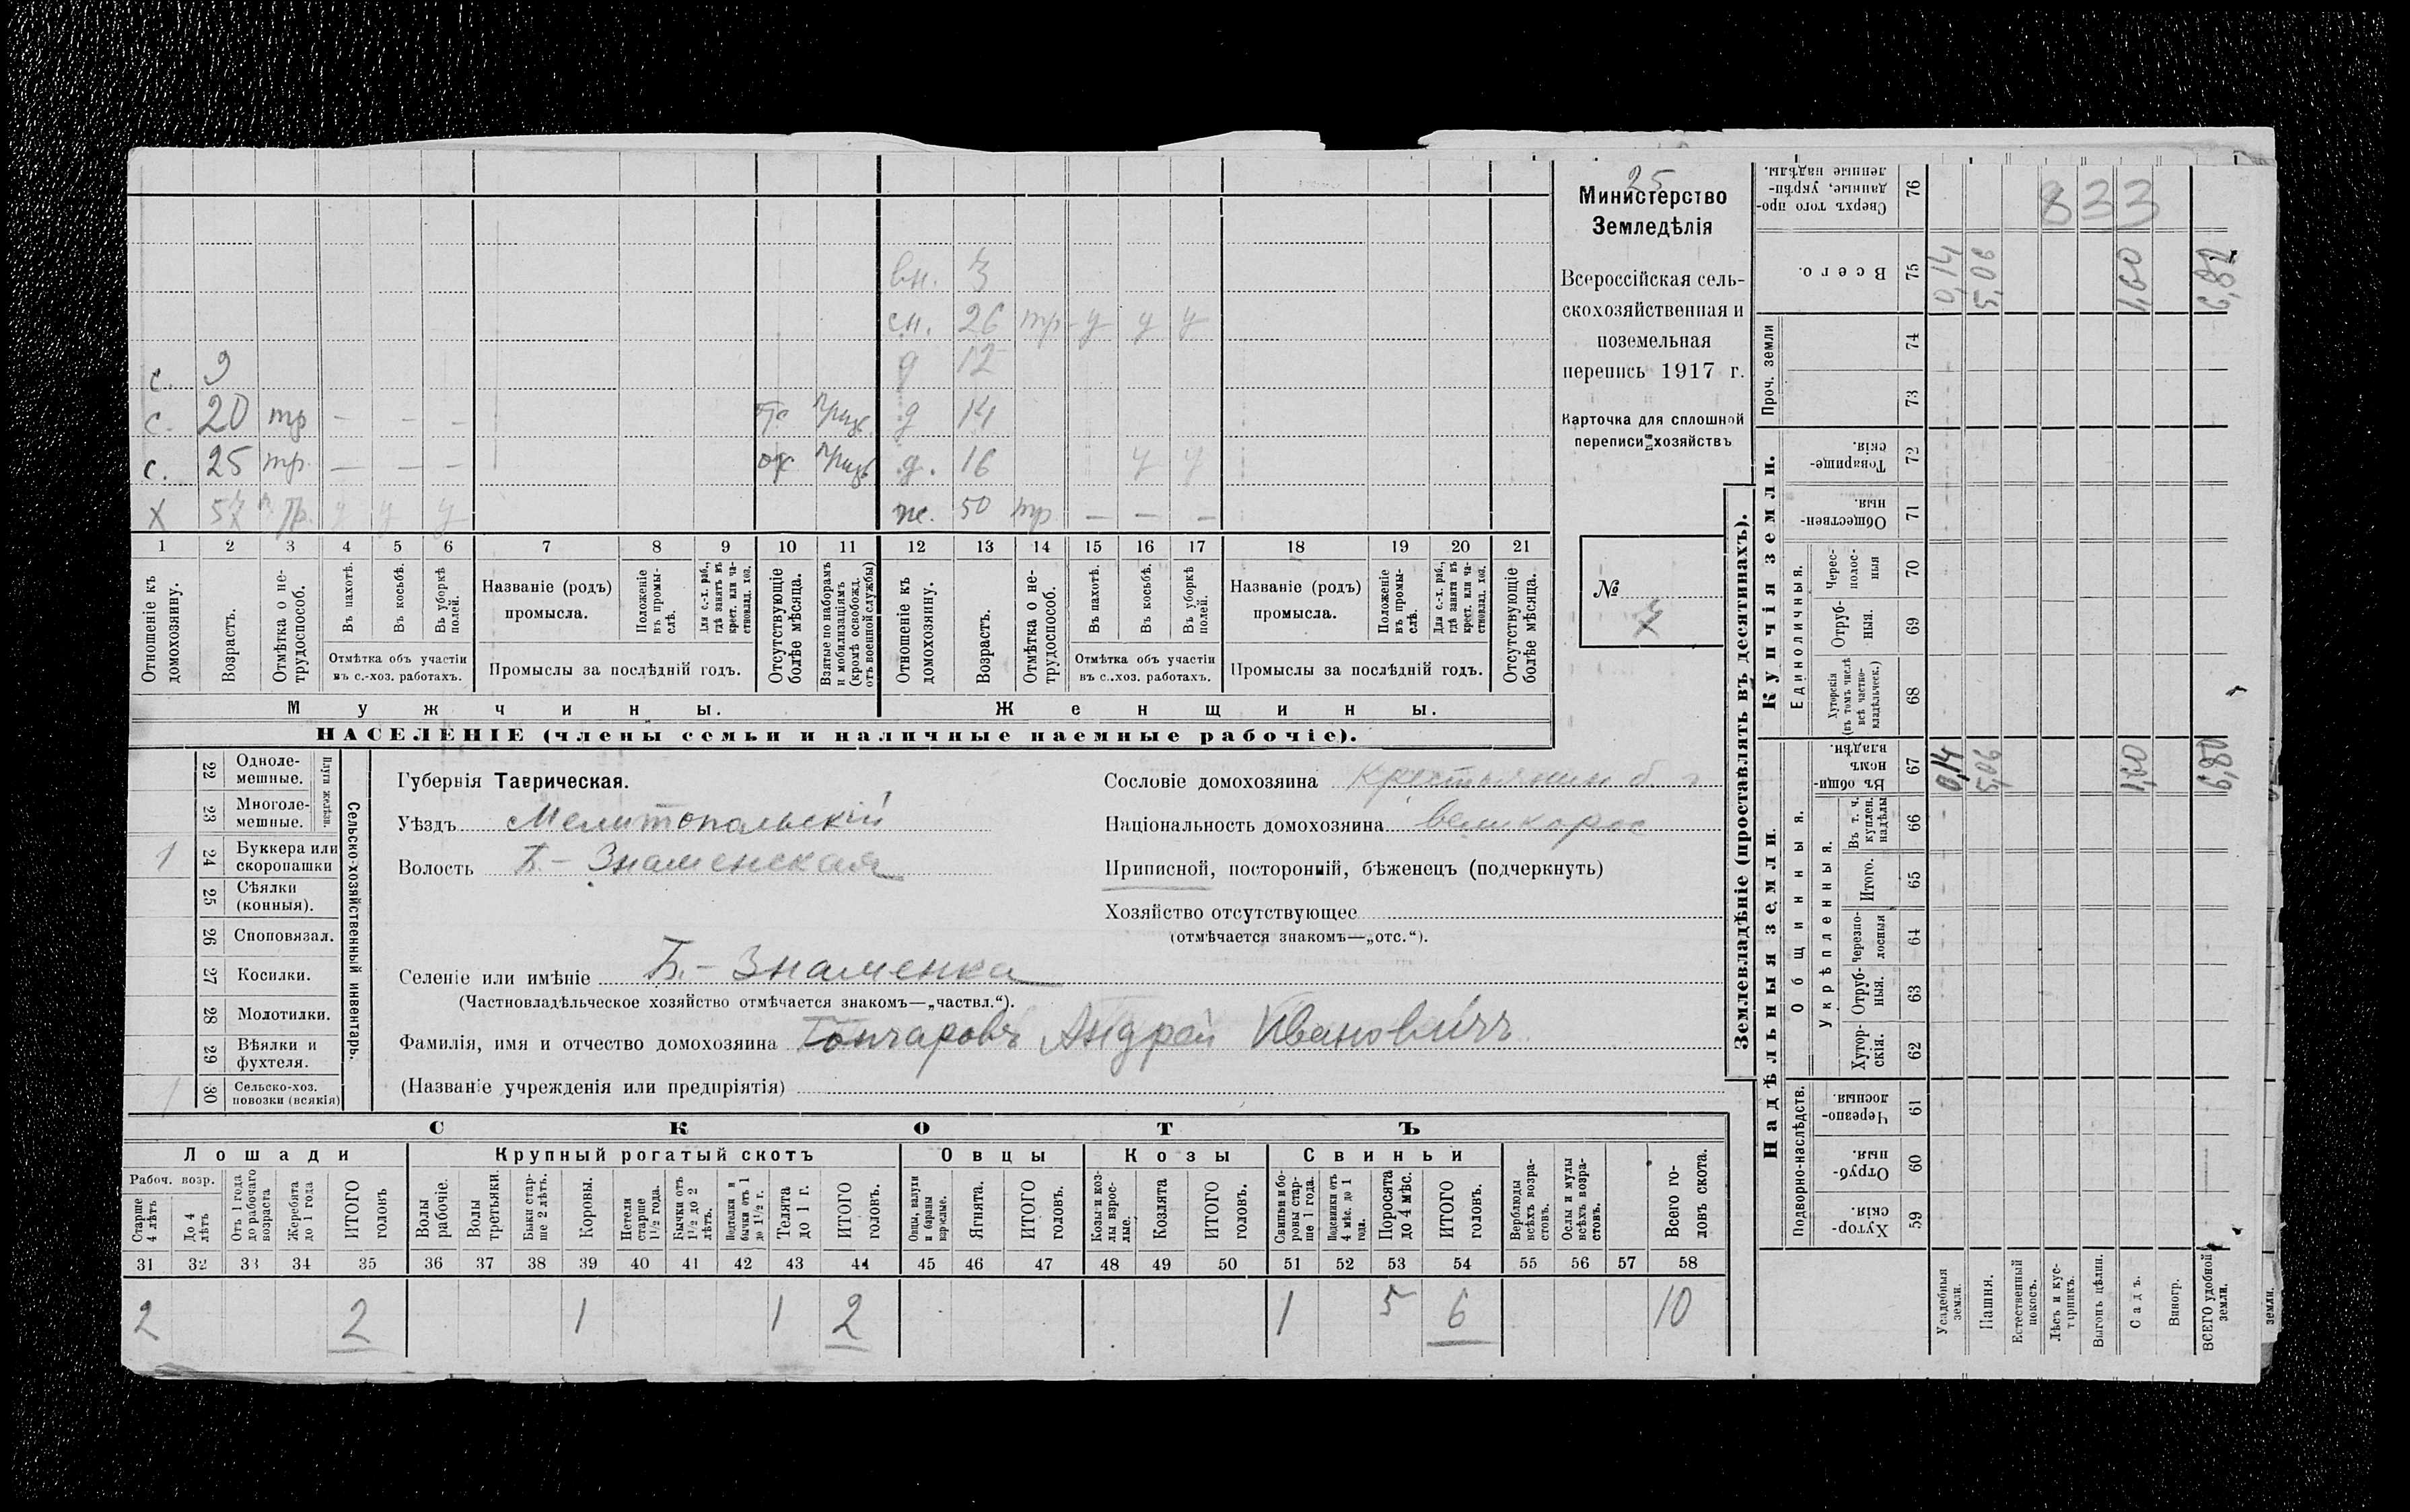 25
Министерство
Земледѣлія
Всероссійская сель-
скохозяйственная и
поземельная
перепись 1917 г.
Карточка для сплошной
переписи хозяйствъ
№
вн. 3
сн. 26 тр у у у
с. 9 д 12
с. 20 тр — — — д 14
с. 25 тр. — — — д. 16 у у
х 57 тр. у у у ж. 50 тр — — —
1 2 3 4 5 6 7 8 9 10 11 12 13 14 15 16 17 18 19 20 21
Отношеніе къ домохозяину.
Возрастъ.
Отмѣтка о не-трудоспособ.
Въ пахотѣ.
Въ косьбѣ.
Въ уборкѣ полей.
Отмѣтка объ участіи
въ с.-хоз. работахъ.
Названіе (родъ)
промысла.
Положеніе въ промы-слѣ.
Для с.-х. раб., гдѣ занятъ въ крест. или ча-стновлад. хоз.
Промыслы за послѣдній годъ.
Отсутствующіе болѣе мѣсяца.
Взятые по наборамъ и мобилизаціямъ (кромѣ освобожд. отъ военной службы)
Отношеніе къ домохозяину.
Возрастъ.
Отмѣтка о не-трудоспособ.
Въ пахотѣ.
Въ косьбѣ.
Въ уборкѣ полей.
Отмѣтка объ участіи
въ с..хоз. работахъ.
Названіе (родъ)
промысла.
Положеніе въ промы-слѣ.
Для с.-х. раб., гдѣ занята въ крест. или ча-стновлад. хоз.
Промыслы за послѣдній годъ.
Отсутствующіе болѣе мѣсяца.
Мужчины. Женщины.
НАСЕЛЕНІЕ (члены семьи и наличные наемные рабочіе).
Сельско-хозяйственный инвентарь.
Плуги желѣзн.
22 Одноле-мешные.
23 Многоле-мешные.
1 24 Буккера или скоропашки
25 Сѣялки (конныя).
26 Споповязал.
27 Косилки.
28 Молотилки.
29 Вѣялки и фухтеля.
1 30 Сельско-хоз. повозки (всякія)
Губернія Таврическая.
Уѣздъ Мелитопольскій
Волость Б.-Знаменская
Селеніе или имѣніе Б.-Знаменка
(Частновладѣльческое хозяйство отмѣчается знакомъ—„частвл.“).
Фамилія, имя и отчество домохозяина Гончаровъ Андрей Ивановичъ
(Названіе учрежденія или предпріятія)
Сословіе домохозяина крестьянин
Національность домохозяина великорос
Приписной, посторонній, бѣженецъ (подчеркнуть)
Хозяйство отсутствующее
(отмѣчается знакомъ—„отс.“).
СКОТЪ
Лошади Крупный рогатый скотъ Овцы Козы Свиньи
Рабоч. возр.
Старше 4 лѣтъ
До 4 лѣтъ
Отъ 1 года до рабочаго возраста
Жеребята до 1 года
ИТОГО головъ
Волы рабочіе.
Волы третьяки.
Быки стар-ше 2 лѣтъ.
Коровы.
Нетели старше 1½ года.
Бычки отъ 1½ до 2 лѣтъ.
Подтелки и бычки отъ 1 до 1½ г.
Телята до 1 г.
ИТОГО головъ.
Овцы, валухи и бараны взрослые.
Ягнята.
ИТОГО головъ.
Козы и коз-лы взрос-лые.
Козлята
ИТОГО головъ.
Свиньи и бо-ровы стар-ше 1 года.
Подсвинки отъ 4 мѣс. до 1 года.
Поросята до 4 мѣс.
ИТОГО головъ.
Верблюды всѣхъ возра-стовъ.
Ослы и мулы всѣхъ возра-стовъ.
Всего го-ловъ скота.
31 32 33 34 35 36 37 38 39 40 41 42 43 44 45 46 47 48 49 50 51 52 53 54 55 56 57 58
2 2 1 1 2 1 5 6 10
Землевладѣніе (проставлять въ десятинахъ).
Надѣльныя земли. Купчія земли. Проч. земли
Подворно-наслѣдств. Общинныя. Единоличныя.
Укрѣпленныя.
Хутор-скія. 59
Отруб-ныя. 60
Черезпо-лосныя. 61
Хутор-скія. 62
Отруб-ныя. 63
Черезпо-лосныя 64
Итого. 65
Въ т. ч. куплен. надѣлы 66
Въ общин-номъ владѣн. 67
Хуторскія (въ томъ числѣ всѣ частно-владѣльческ.) 68
Отруб-ныя. 69
Черес-полос-ныя 70
Обществен-ныя. 71
Товарище-скія. 72
73
74
Всего. 75
Сверхъ того про-данные, укрѣп-ленные надѣлы. 76
833
Усадебныя земли. 0,14 0,14
Пашня. 5,06 5,06
Естественный покосъ.
Лѣсъ и кус-тарникъ.
Выгонъ цѣлин.
Садъ. 1,60 1,60
Виногр.
ВСЕГО удобной земли. 6,80
земли.